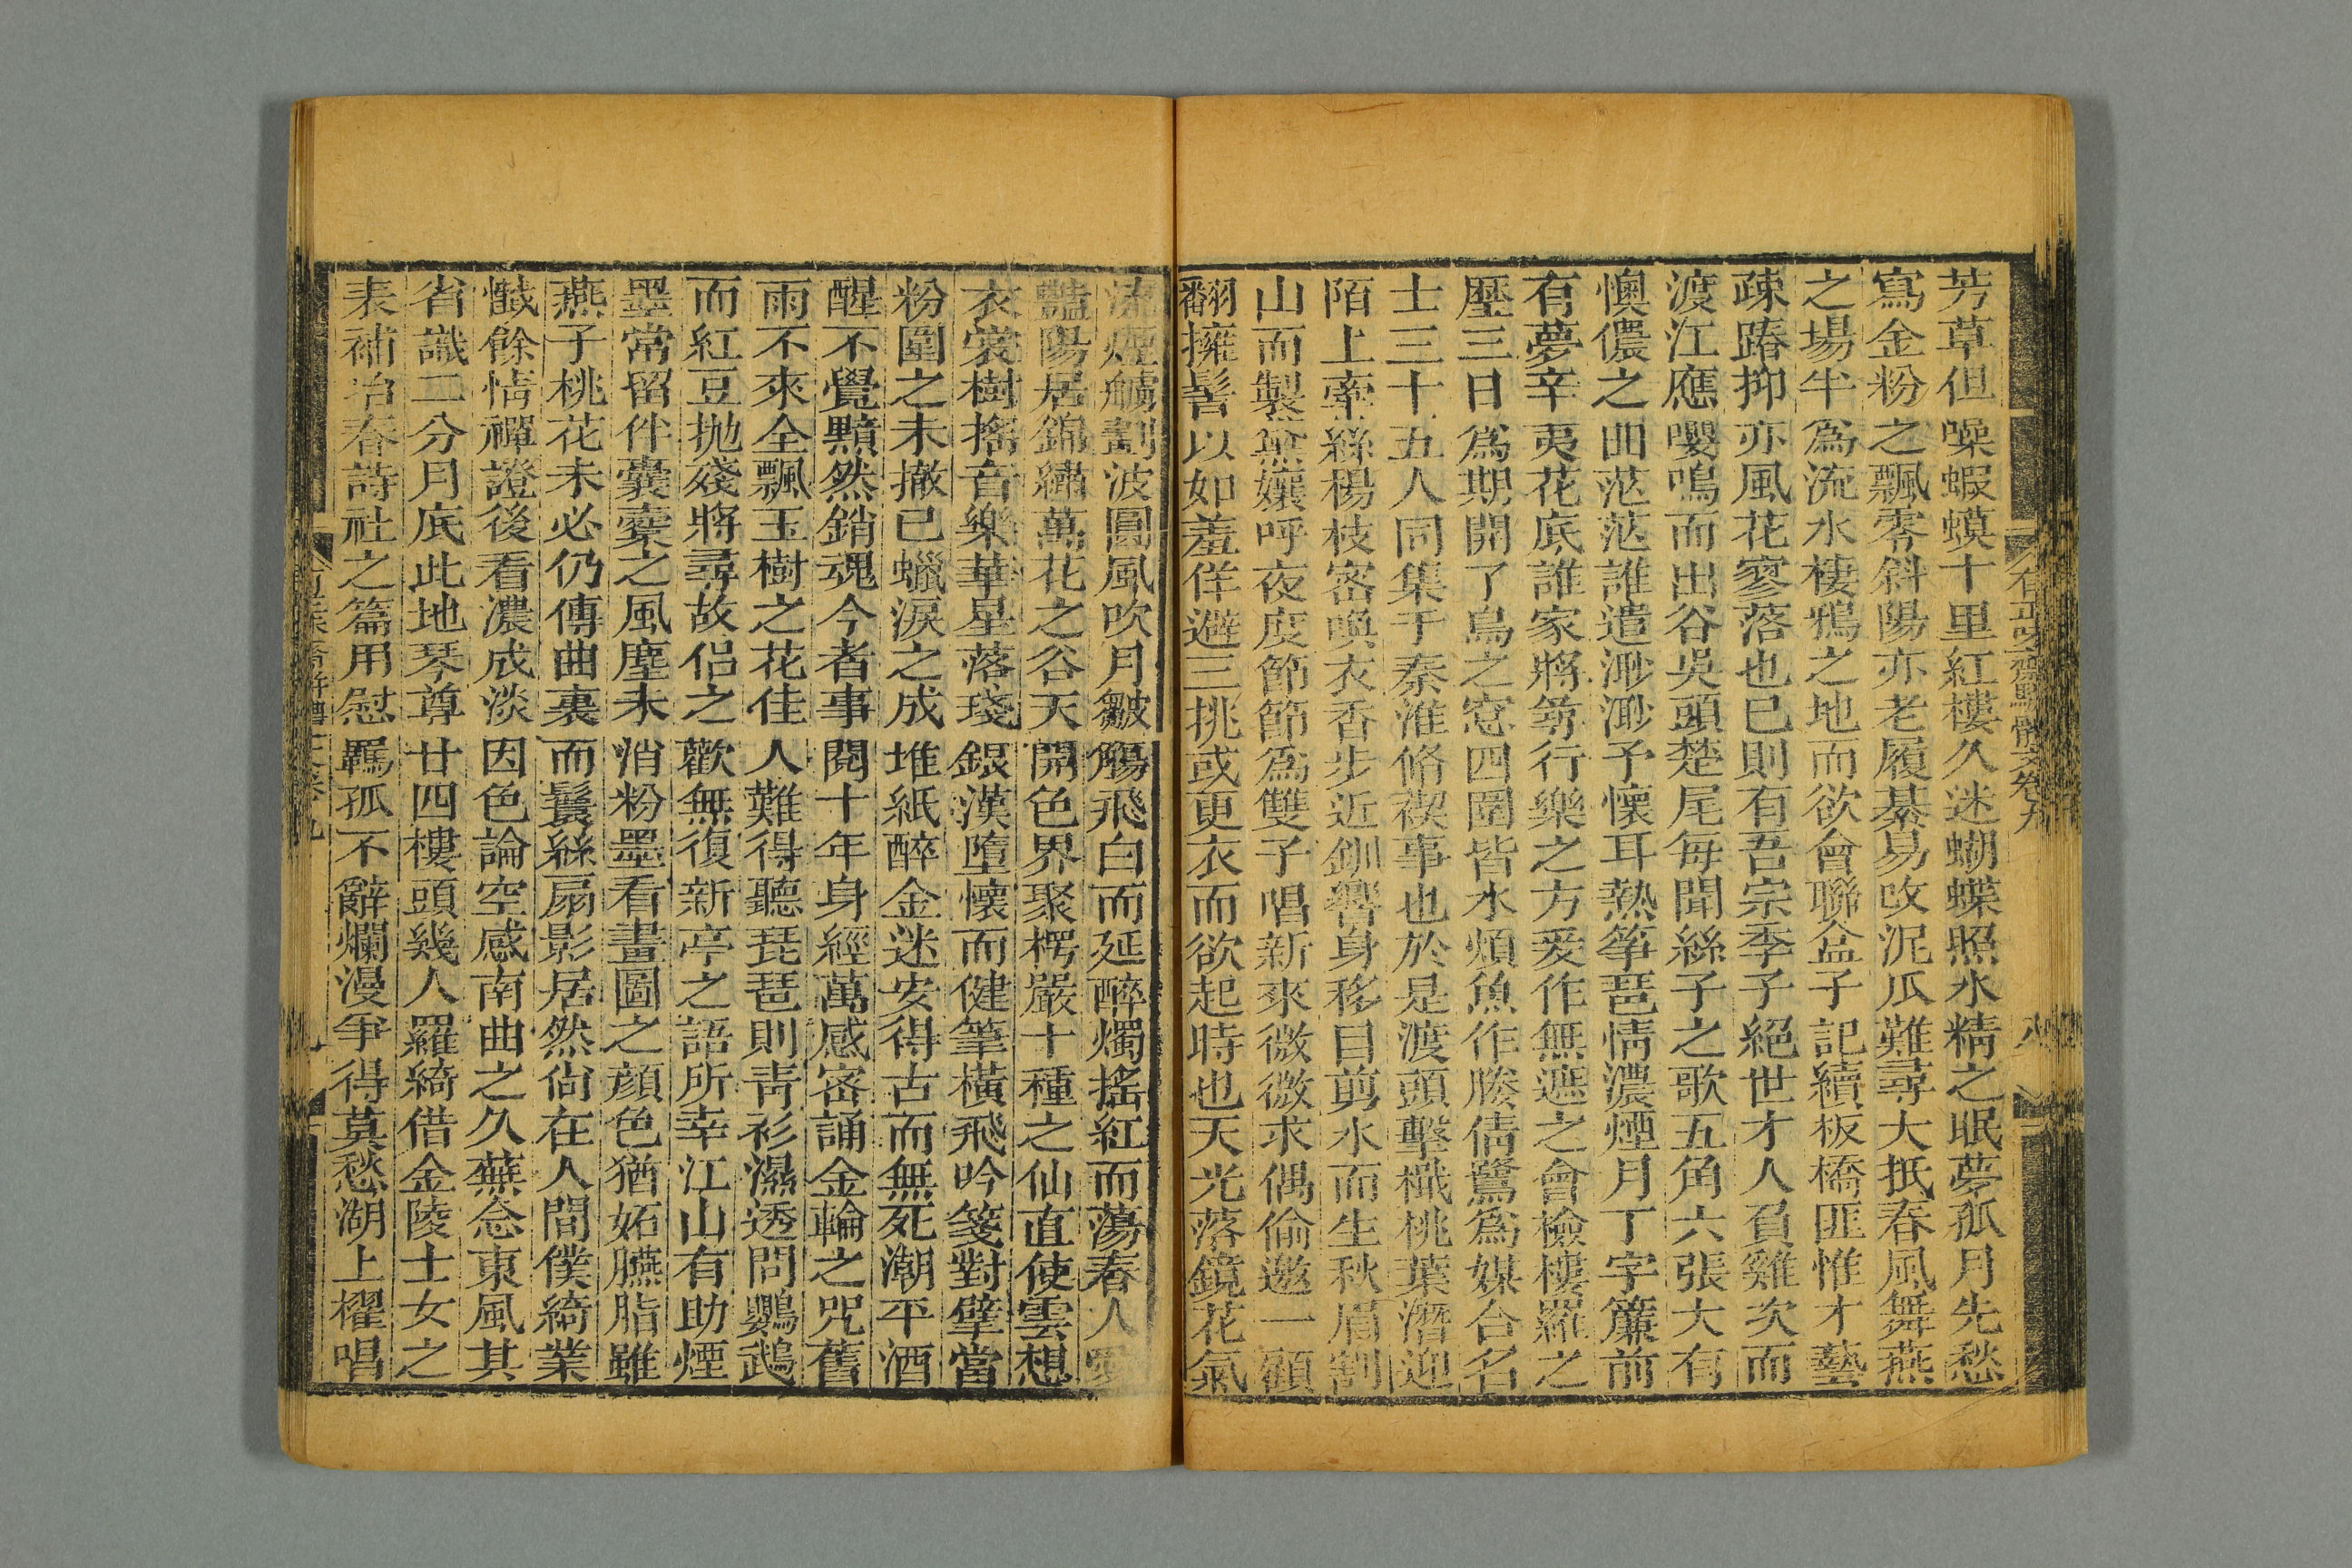 有正味齋駢體文卷九
八
芳草但噪蝦蟆十里紅樓久迷蝴蝶照水精之眠夢孤月先愁
寫金粉之飄零斜陽亦老履綦易改泥瓜難尋大抵春風舞燕
之場半爲流水棲鴉之地而欲會聯盆子記續板橋匪惟才藝
疎蹖抑亦風花寥落也已則有吾宗季子絕世才人負雞次而
渡江應嚶鳴而出谷吳頭楚尾每聞絲子之歌五角六張大有
懊儂之曲茫茫誰遣渺渺予懷耳熱筝琶情濃煙月丁字簾前
有夢辛夷花底誰家將筭行樂之方爰作無遮之會檢樓羅之
歷三日爲期開了鳥之窓四圍皆水煩魚作媵倩鷺爲媒合名
士三十五人同集于秦淮脩禊事也於是渡頭擊檝桃葉潛迎
陌上牽絲楊枝密喚衣香步近釧響身移目剪水而生秋眉割
山而製黛孃呼夜度節節爲雙子唱新來微微求偶偷邀一顧
翻擁髻以如羞佯避三挑或更衣而欲起時也天光落鏡花氣
流煙艫劃波圓風吹月皺觴飛白而延醉燭搖紅而蕩春人愛
豔陽居錦繡萬花之谷天開色界聚楞嚴十種之仙直使雲想
衣裳樹搖音樂華星落琖銀漢墮懷而健筆橫飛吟箋對擘當
粉圍之未撤已蠟淚之成堆紙醉金迷安得古而無死潮平酒
醒不覺黯然銷魂今者事閱十年身經萬感密誦金輪之咒舊
雨不來全飄玉樹之花佳人難得聽琵琶則靑衫濕透問鸚鵡
而紅豆抛殘將尋故侶之歡無復新亭之語所幸江山有助煙
墨常留伴囊橐之風塵未消粉墨看畫圖之顔色猶妬臙脂雖
燕子桃花未必仍傳曲裏而鬢絲扇影居然尙在人間僕綺業
懺餘情禪證後看濃成淡因色論空感南曲之久蕪念東風其
省識二分月底此地琴尊廿四樓頭幾人羅綺借金陵士女之
表補冶春詩社之篇用慰羈孤不辭爛漫爭得莫愁湖上櫂唱